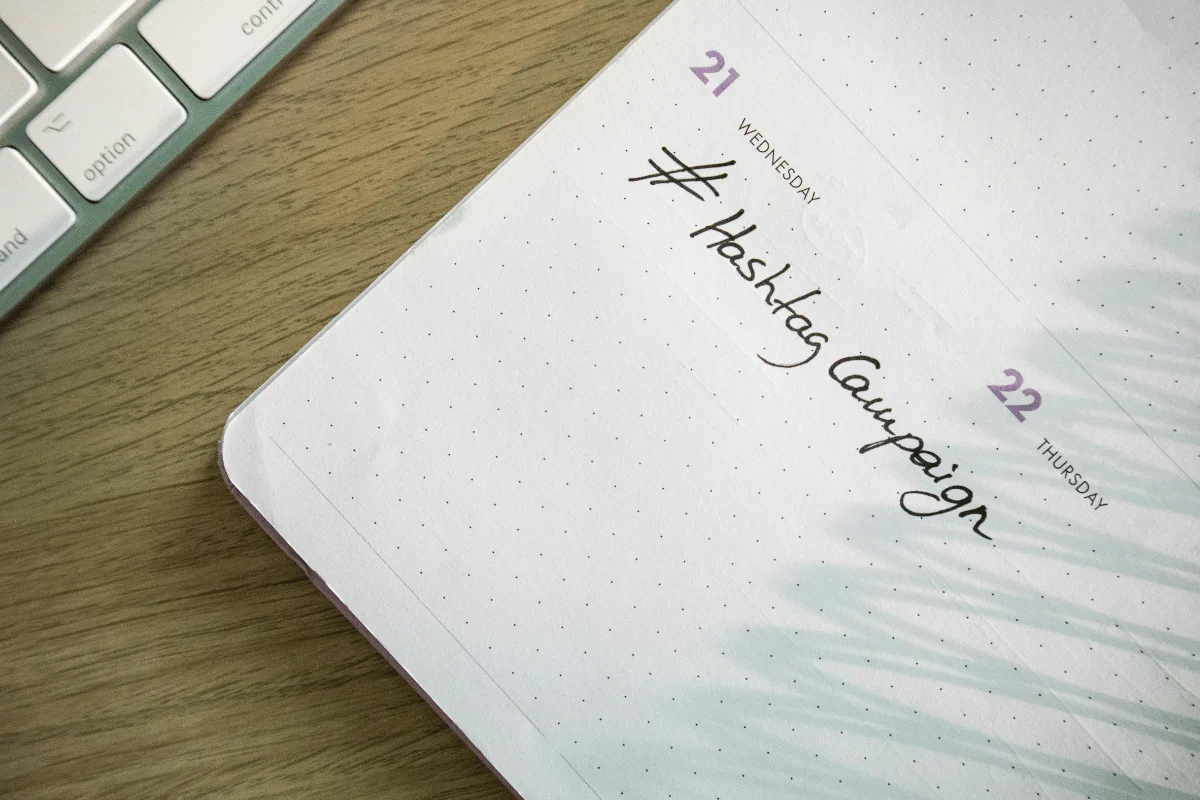 contr
option
and
21
WEDNESDAY
# Hashtag Campaign
22
THURSDAY